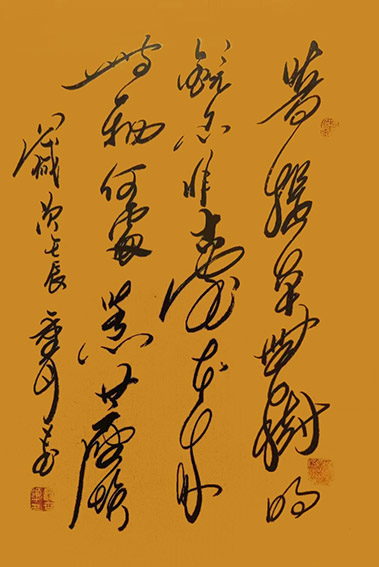 菩提本無樹明
鏡亦非臺本來
無一物何處惹塵埃
歲次壬辰